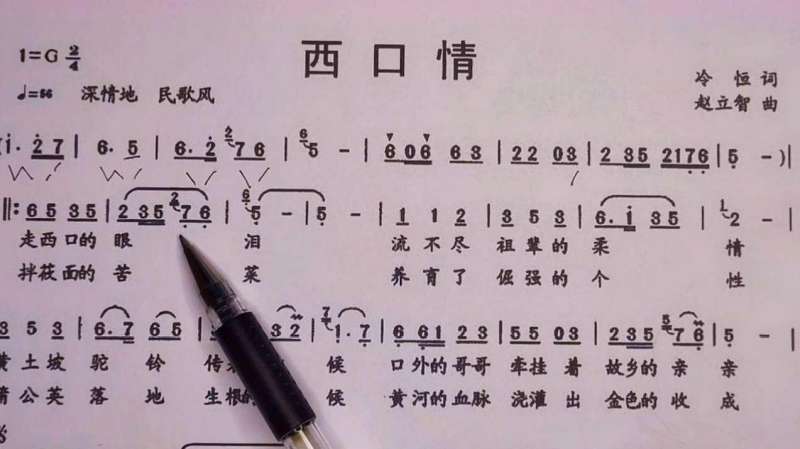 西口情
1=G 2/4
冷 恒 词
♩=56 深情地 民歌风
赵立智 曲
(i. 2 7 | 6. 5 | 6. 2 2 7 6 | 6 5 - | 6 06 6 3 | 2 2 03 | 2 35 2176 | 5 - )|
‖: 6 5 3 5 | 2 35 2 7 6 | 6 5 - | 5 - | 1 1 2 | 3 5 3 | 6. i 3 5 | 1 2 -
走西口的 眼 泪 流 不 尽 祖 辈 的 柔 情
拌莜面的 苦 菜 养 育 了 倔 强 的 个 性
3 5 3 | 6. 7 6 5 | 3 2 | 7 1. 7 | 6 61 2 3 | 5 5 3 | 2 35 5 7 6 | 5 -
土 坡 驼 铃 传 候 口 外的 哥 哥 牵 挂 着 故乡的 亲 亲
公 英 落 地 生 根的 候 黄 河的 血 脉 浇 灌 出 金色的 收 成